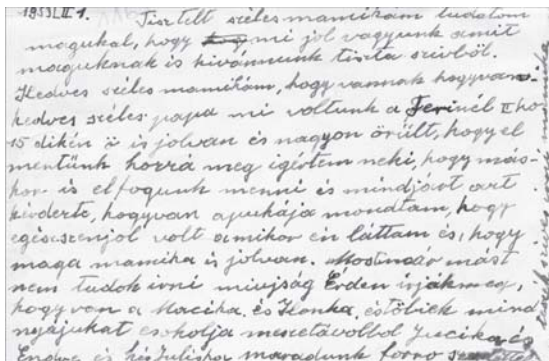 1953 II 1.
Tisztelt széles mamikám tudatom
magukal, hogy mi jol vagyunk amit
maguknak is kivánnunk tiszta szivböl.
Kedves széles mamikám, hogy vannak hogyvan
kedves széles papa mi voltunk a Ferinél II hó
15 dikén ö is jolvan és nagyon örült, hogy el
mentünk hozzá meg igértem neki, hogy más-
kor is elfogunk menni és mindjárt azt
kérderte, hogyvan apukája mondtam, hogy
egésszenjol volt amikor én láttam és, hogy
maga mamika is jolvan. Mostmár mást
nem tudok irni miujság Érden irják meg,
hogyvan a Macika. és Ilonka, éstöbiek mind
nyájukat csokolja messetávolbol Jucika és
Endre és kis Juliska maradunk forro